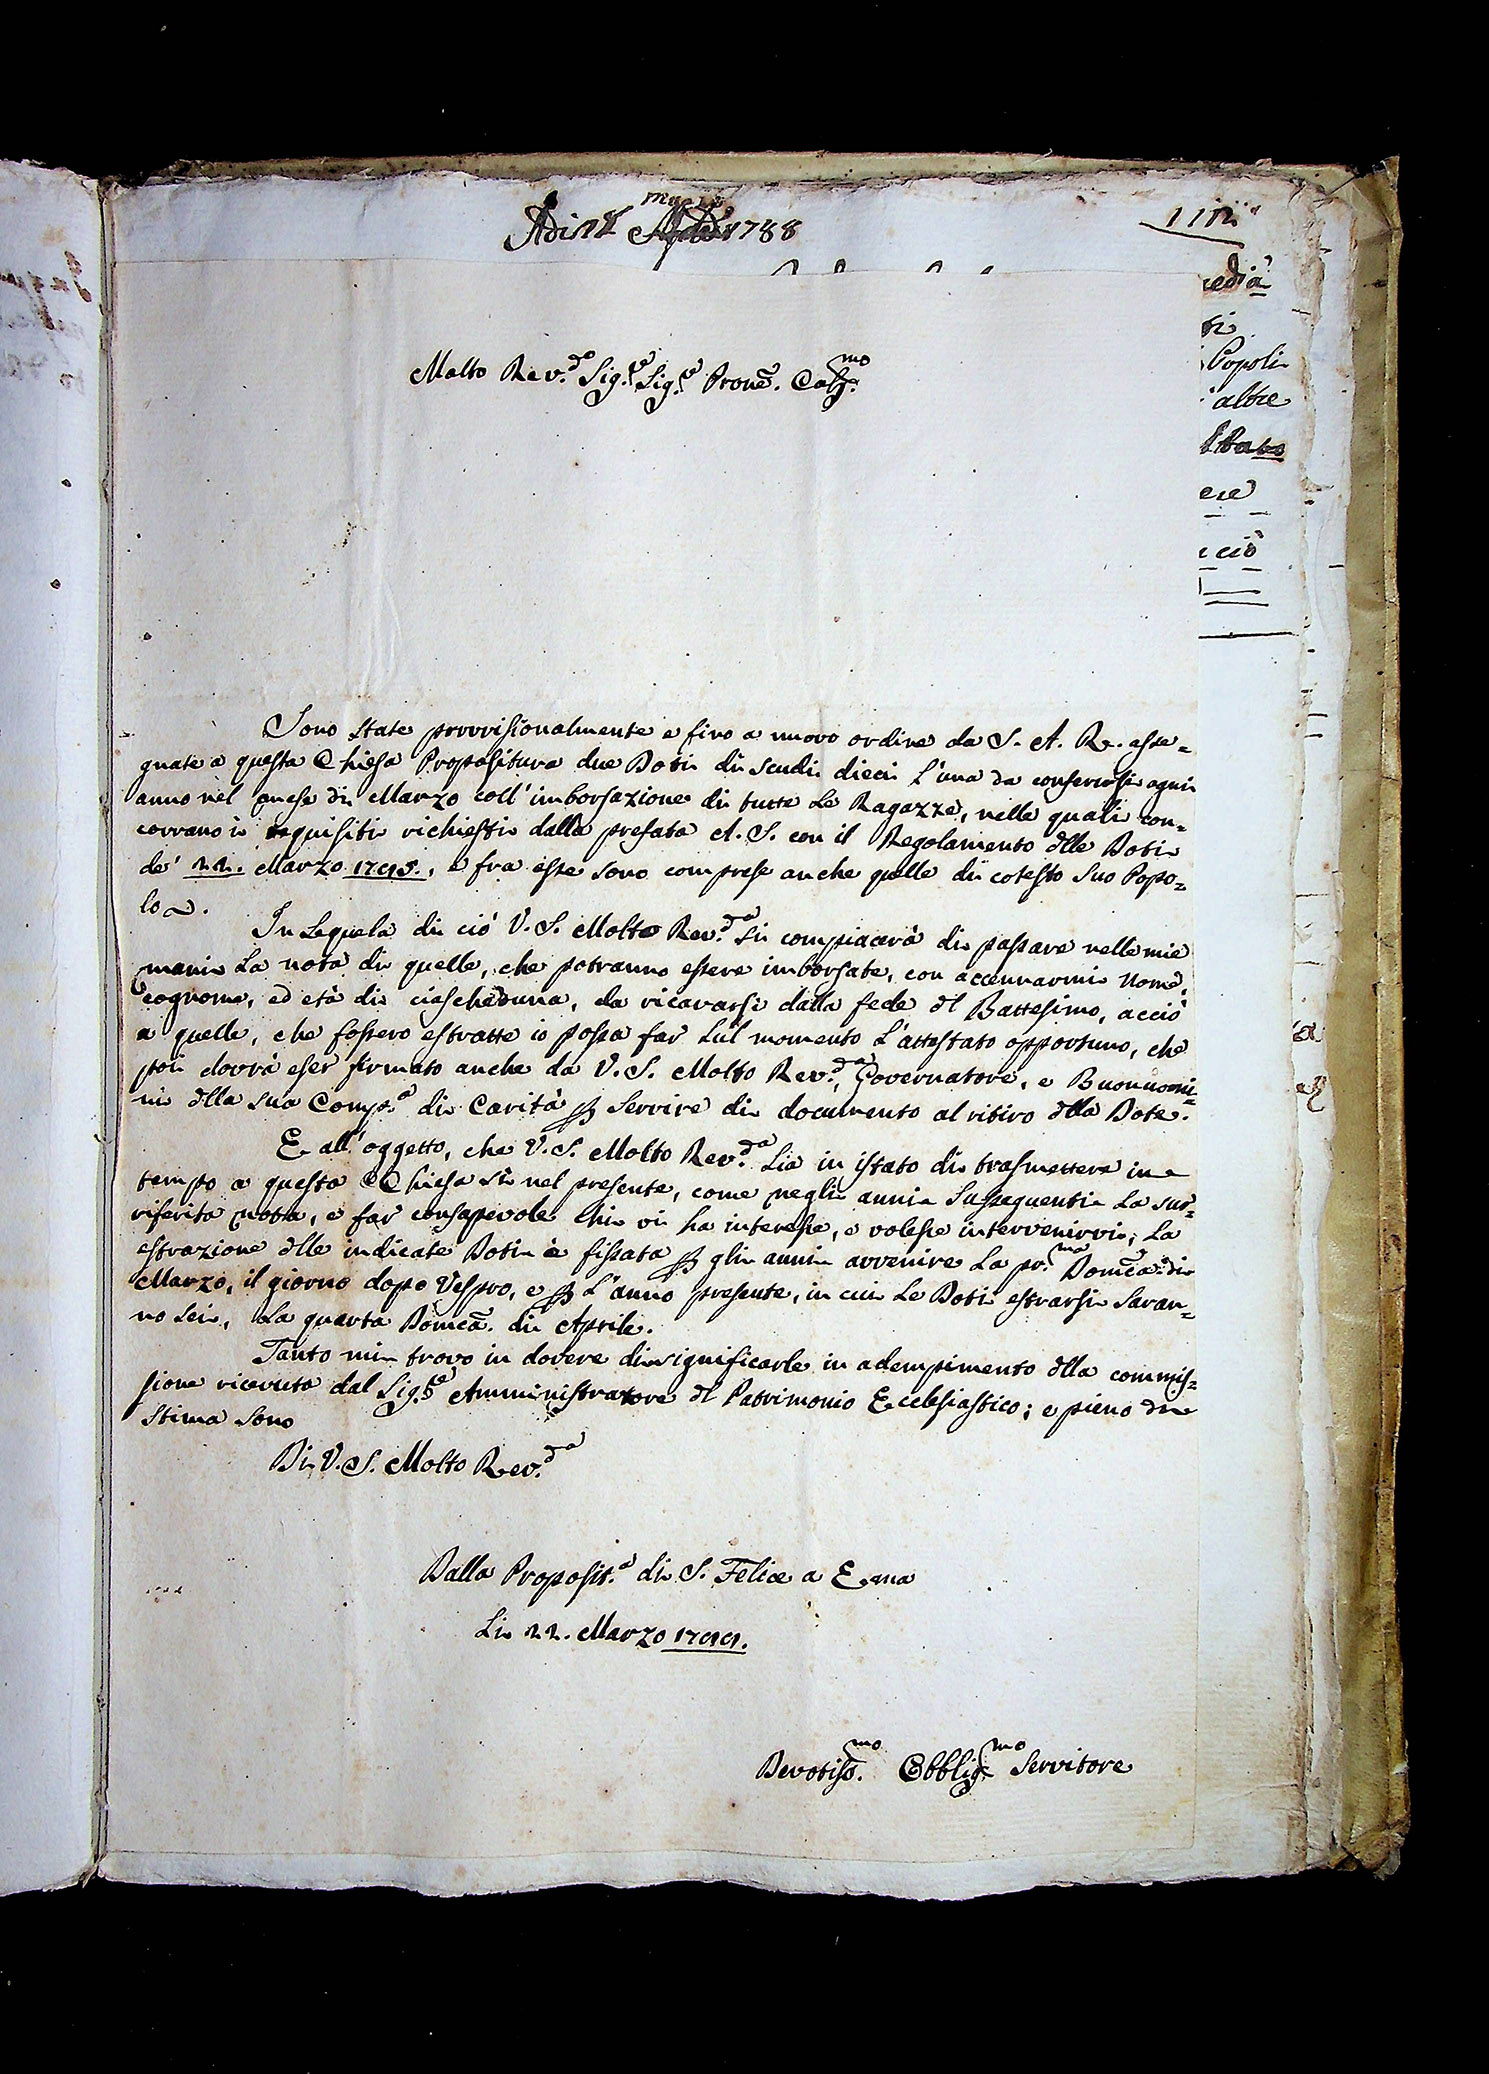 Adi 18 1788
Molto Rev.do Sig.re Sig.re Prone. Colmo.
Sono state provvisionalmente e fino a nuovo ordine da S. A. R. asse=
gnate a questa Chiesa Propositura due Doti di scudi dieci l'una da conferirsi ogni
anno nel mese di Marzo coll'imborsazione di tutte le Ragazze, nelle quali con=
corrano i requisiti richiesti dalla prefata A. S. con il Regolamento dlle Doti
de' 22. Marzo 1795., e fra esse sono comprese anche quelle di cotesto suo Popo=
lo.
In sequela di ciò V. S. Molto Rev.da si compiacerà di passare nelle mie
mani la nota di quelle, che potranno essere imborsate, con accennarmi nome,
cognome, ed età di ciascheduna, da ricavarsi dalla fede dl Battesimo, acciò
a quelle, che fossero estratte io possa far sul momento l'attestato opportuno, che
poi dovrà eser firmato anche da V. S. Molto Rev.da, Governatore, e Buonuomi=
ni dlla sua Comp.a di Carità p servire di documento al ritiro dlla Dote.
E all'oggetto, che V. S. Molto Rev.da sia in istato di trasmettere in
tempo a questa Chiesa sì nel presente, come negli anni susseguenti la sur=
riferita nota, e far consapevole chi vi ha interesse, e volesse intervenirvi, la
estrazione dlle indicate Doti è fissata p gli anni avvenire la pr.ma Domca. di
Marzo, il giorno dopo Vespro, e p l'anno presente, in cui le Doti estrarsi saran=
no sei, la quarta Domca. di Aprile.
Tanto mi trovo in dovere di significarle in adempimento dlla commis=
sione ricevuta dal Sig.re Amministratore dl Patrimonio Ecclesiastico; e pieno di
stima sono
Di V. S. Molto Rev.da
Dalla Proposit.a di S. Felice a Ema
Li 22. Marzo 1799.
Devotiss.mo Obblig.mo Servitore
edià
ti
Popoli
altre
ere
ciò